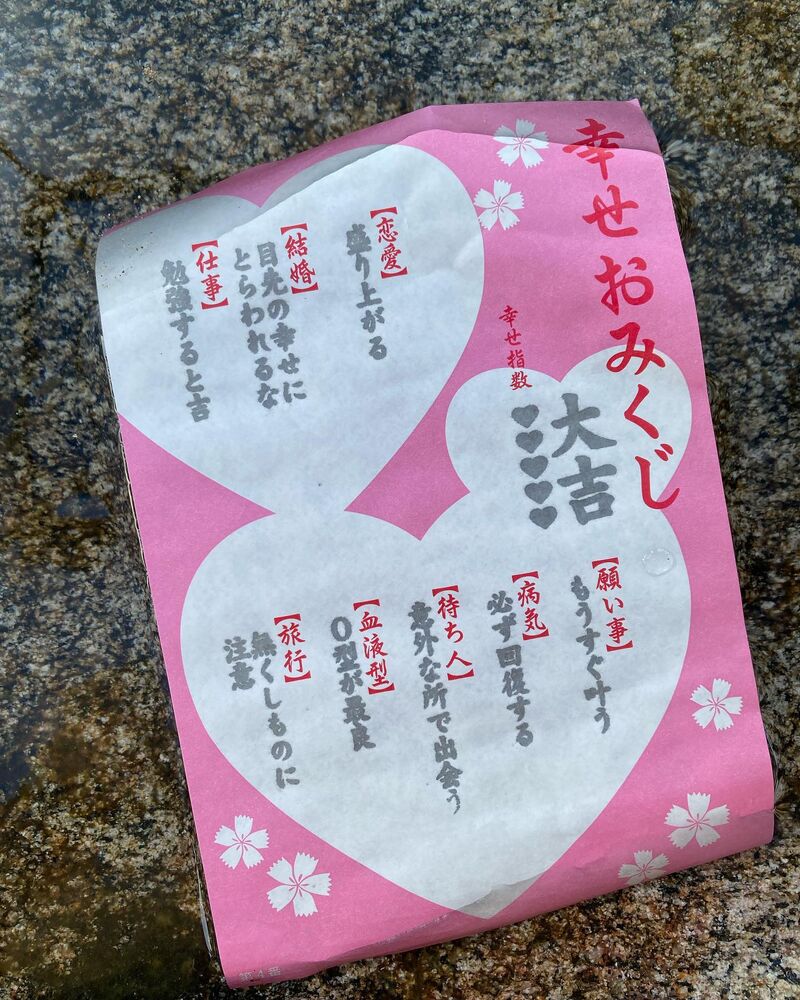 幸せおみくじ
幸せ指数
大吉
♥♥♥♥♥
【願い事】
もうすぐ叶う
【病気】
必ず回復する
【待ち人】
意外な所で出会う
【血液型】
O型が最良
【旅行】
無くしものに
注意
【恋愛】
盛り上がる
【結婚】
目先の幸せに
とらわれるな
【仕事】
勉強すると吉
第4番